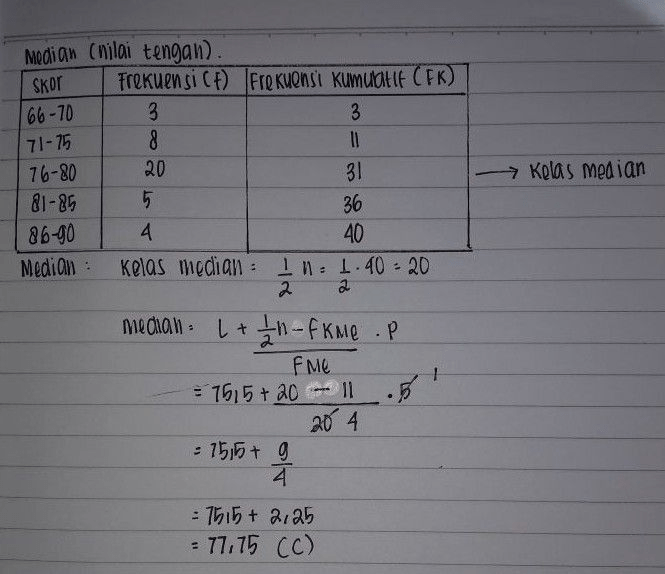 Median (nilai tengah).
Skor Frekuensi (f) Frekuensi Kumulatif (FK)
66-70 3 3
71-75 8 11
76-80 20 31 → Kelas median
81-85 5 36
86-90 4 40
Median : Kelas median = 1/2 n = 1/2 . 40 = 20
median = L + (1/2 n - FKMe)/FMe . P
= 75,5 + (20 - 11)/20 4 . 5 1
= 75,5 + 9/4
= 75,5 + 2,25
= 77,75 (C)